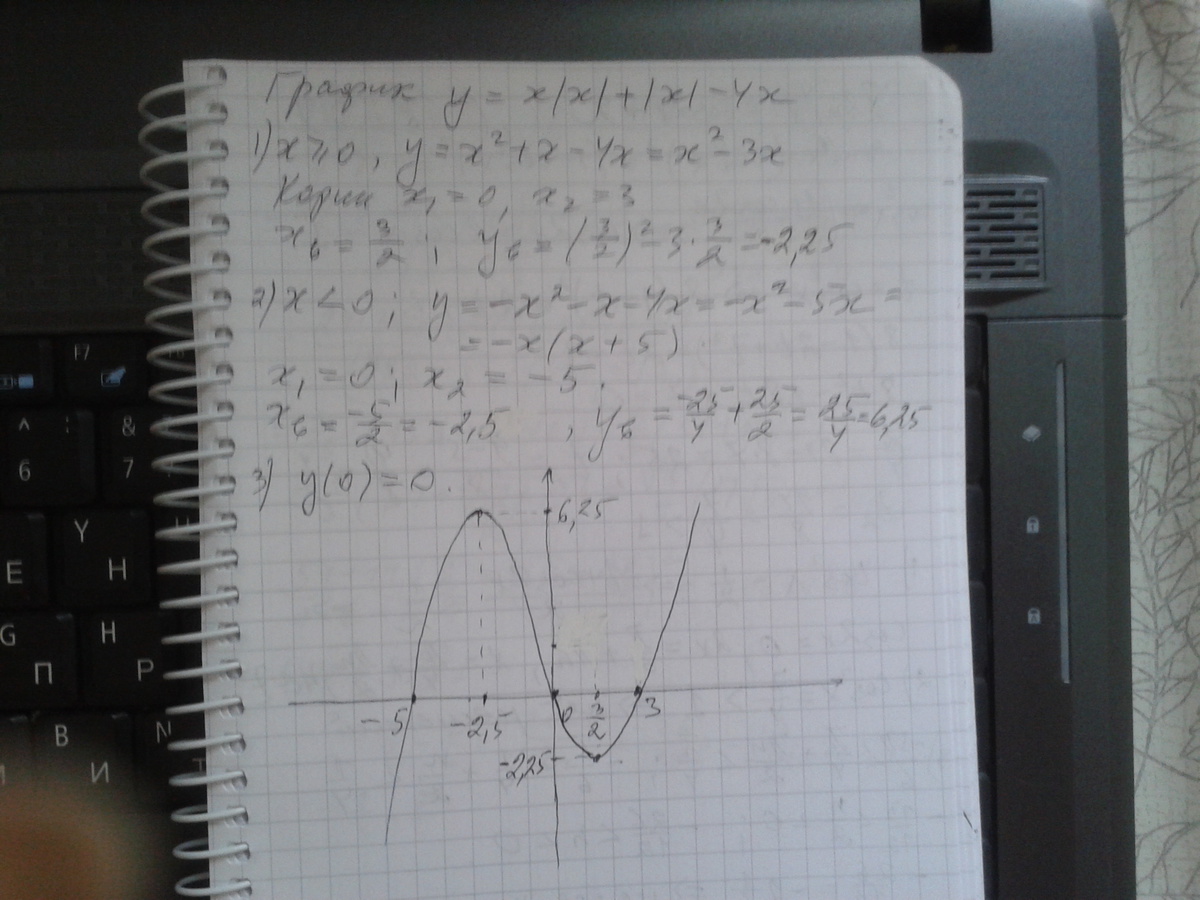 График y = x|x|+|x|-4x
1) x≥0, y=x²+x-4x=x²-3x
Корни x₁=0, x₂=3
xв = 3/2 ; yв = (3/2)²-3·3/2=-2,25
2) x<0; y=-x²-x-4x=-x²-5x=
=-x(x+5)
x₁=0; x₂=-5.
xв=-5/2=-2,5 , yв=-25/4+25/2=25/4=6,25
3) y(0)=0.
6,25
-5 -2,5 0 3/2 3
-2,25
F7
^ : &
6 7
Y
E H
G H
П Р
B N
И